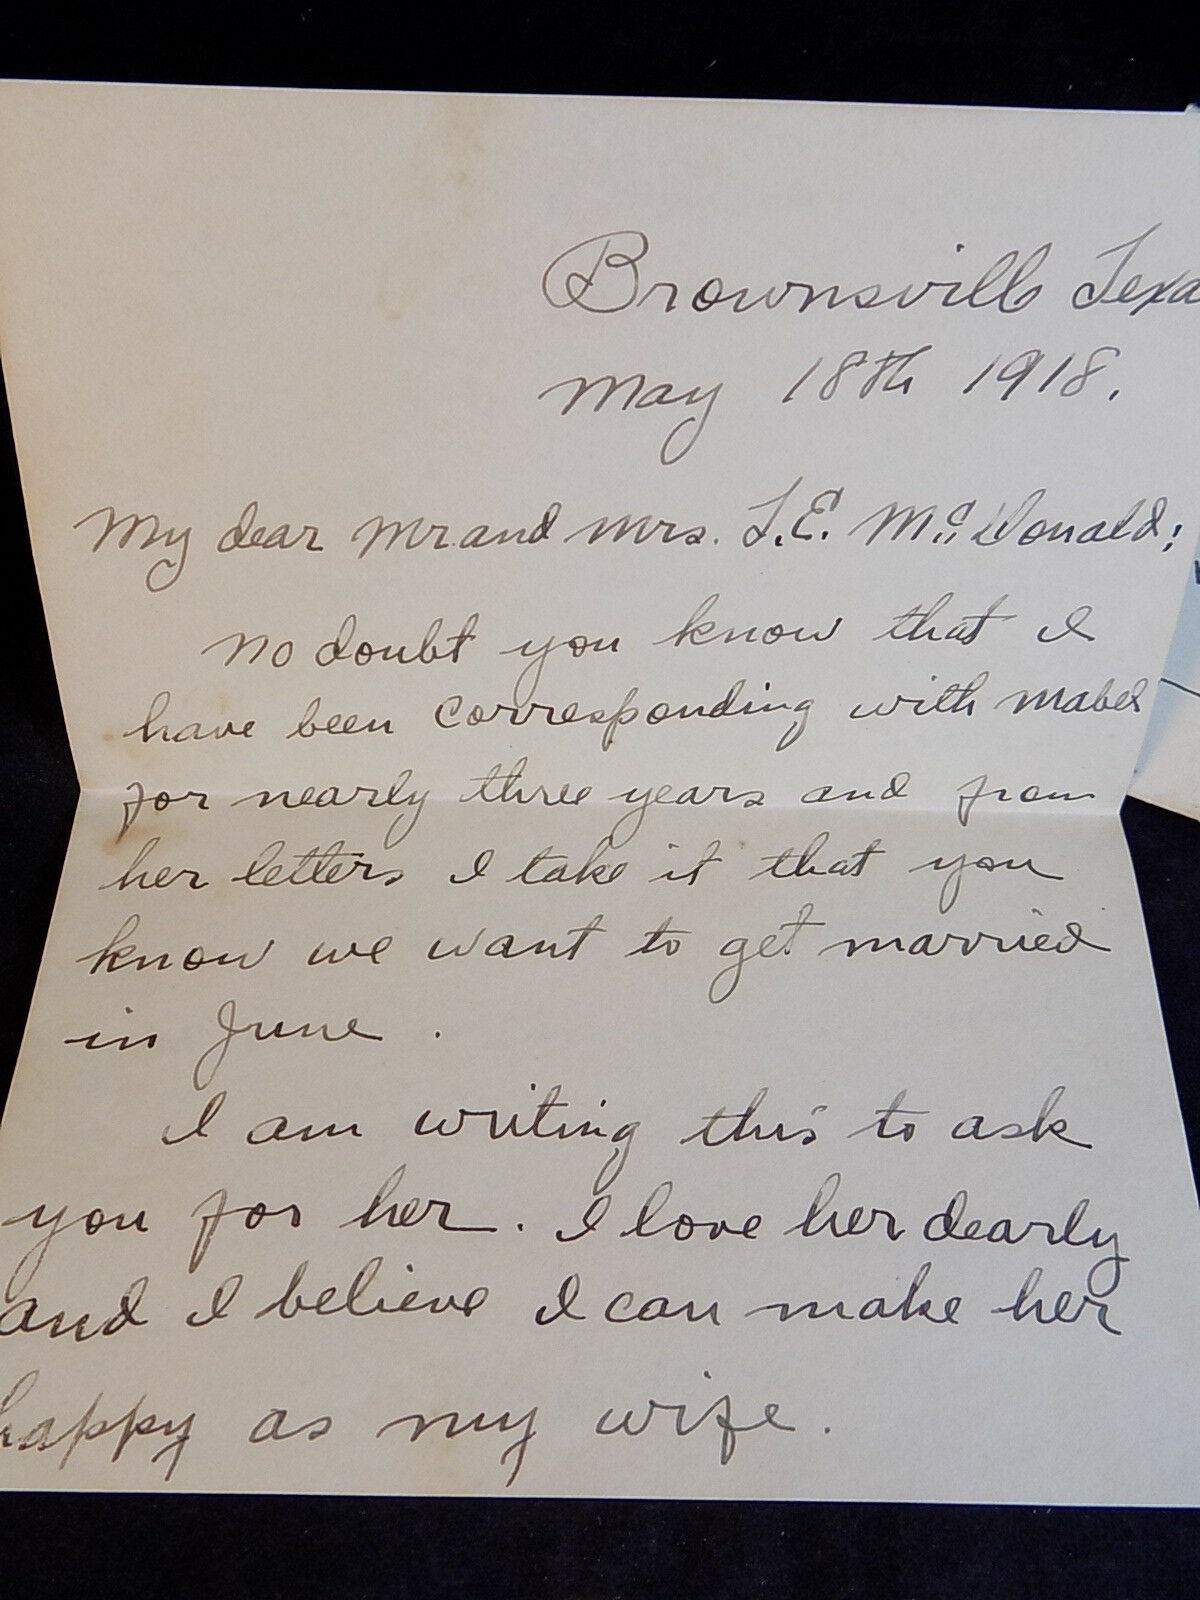 Brownsvill Texa
May 18th 1918.
My dear Mr and Mrs. L.E. McDonald;
No doubt you know that I
have been corresponding with Mabel
for nearly three years and from
her letters I take it that you
know we want to get married
in June.
I am writing this to ask
you for her. I love her dearly
and I believe I can make her
happy as my wife.